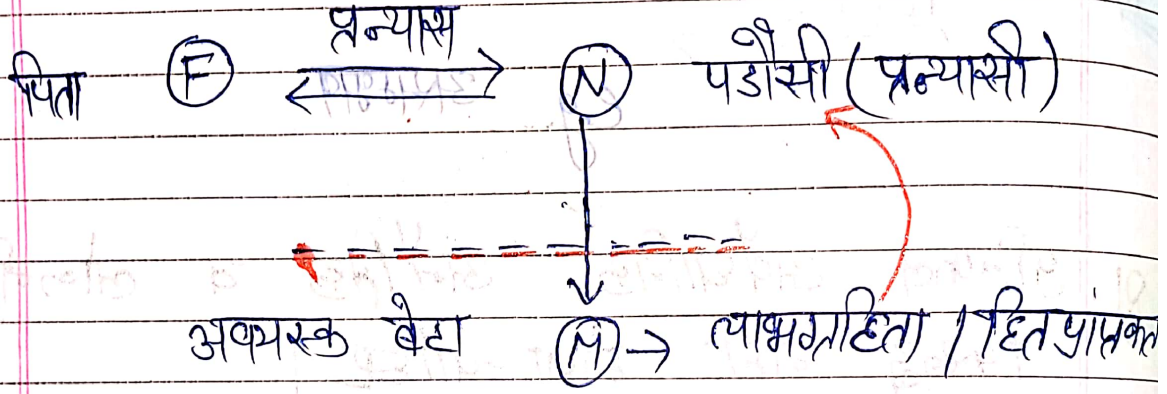 प्रन्यास
पिता F N पडौसी (प्रन्यासी)
अवयस्क बेटा M → लाभग्रहिता / हितप्राप्तकर्ता